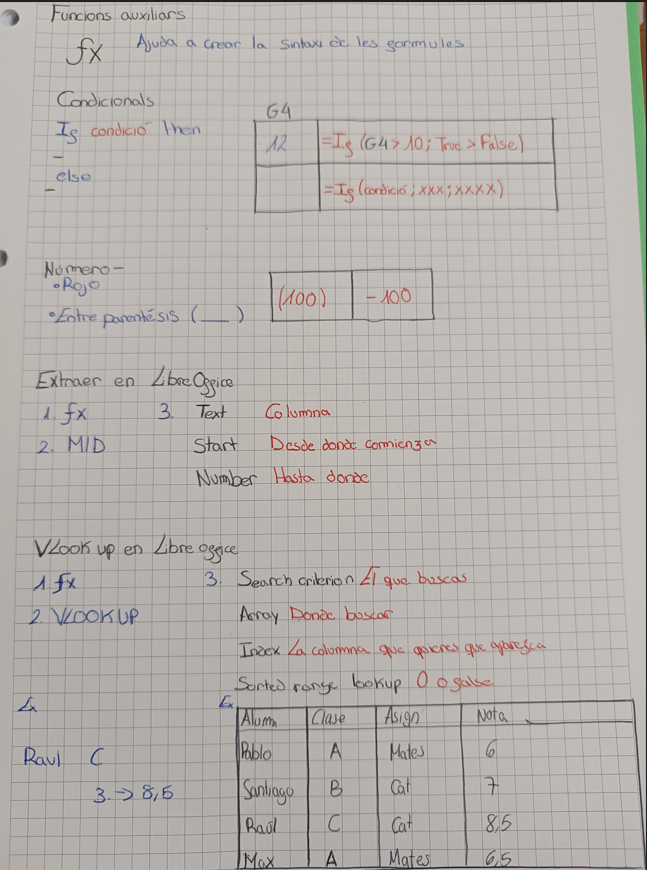 Funcions auxiliars
fx Ajuda a crear la sintaxi de les formules
Condicionals
If condició then
–
else
–
G4
12 =If (G4>10; True > False)
=If (condició; xxx; xxxx)
Numero –
• Rojo
• Entre parentésis ( __ )
(100) -100
Extraer en Libre Office
1. fx 3. Text Columna
2. MID Start Desde donde comienza
Number Hasta donde
VLook up en Libre office
1. fx 3. Search criterion El que buscas
2. VLOOKUP Array Donde buscar
Index La columna que quieres que aparesca
Sorted range lookup 0 o false
Ex
Raul C
3. → 8,5
Ex
Alumn Clase Asign Nota
Pablo A Mates 6
Santiago B Cat 7
Raúl C Cat 8,5
Max A Mates 6,5